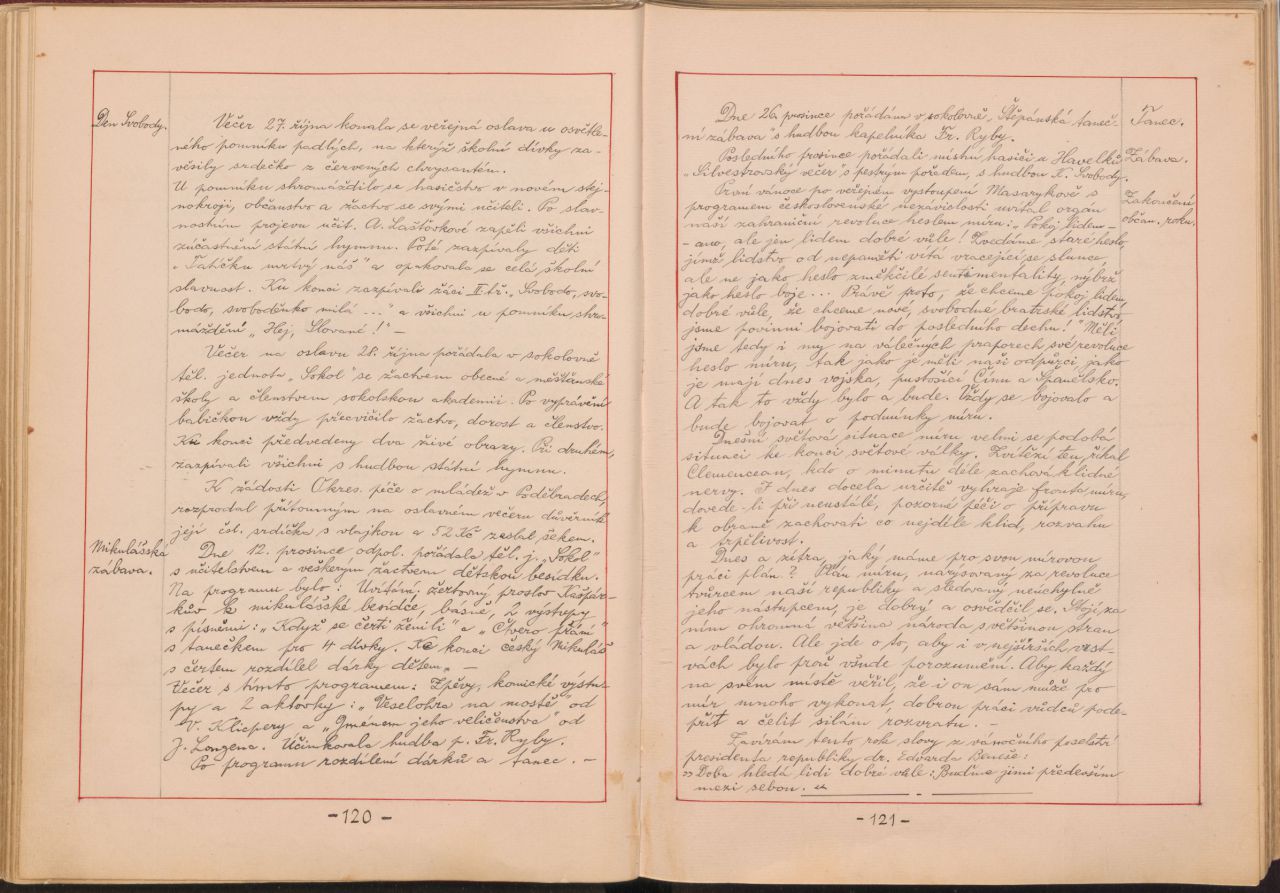 Den Svobody.
Večer 27. října konala se veřejná oslava u osvětle-
ného pomníku padlých, na kterýž školní dívky za-
věsily srdečko z červených chrysantém.
U pomníku shromáždilo se hasičstvo v novém stej-
nokroji, občanstvo a žactvo se svými učiteli. Po slav-
nostním projevu učit. A. Laštovkové zapěli všichni
zúčastnění státní hymnu. Poté zazpívaly děti
"Tatíčku mrtvý náš" a opakovala se celá školní
slavnost. Ku konci zazpívali žáci II. tř. "Svobodo, svo-
bodo, svoboděnko milá ..." a všichni u pomníku shro-
máždění "Hej, Slované!" -
Večer na oslavu 28. října pořádala v sokolovně
těl. jednota "Sokol" se žactvem obecné a měšťanské
školy a členstvem sokolskou akademii. Po vyprávění
babičkou vždy přecvičilo žactvo, dorost a členstvo.
Ku konci předvedeny dva živé obrazy. Při druhém,
zazpívali všichni s hudbou státní hymnu.
K žádosti Okres. péče o mládež v Poděbradech,
rozprodal přítomným na oslavném večeru důvěrník
její čsl. srdíčka s vlajkou a 52 Kč zaslal šekem.
Mikulášská
zábava.
Dne 12. prosince odpol. pořádala těl. j. "Sokol"
s učitelstvem a veškerým žactvem dětskou besídku.
Na programu bylo: Uvítání, žertovný proslov Kašpár-
kův k mikulášské besídce, básně, 2 výstupy
s písněmi: "Když se čerti ženili" a "Čtvero přání"
s tanečkem pro 4 dívky. Ke konci český Mikuláš
s čertem rozdílel dárky dětem. -
Večer s tímto programem: Zpěvy, komické výstu-
py a 2 aktovky: "Veselohra na mostě" od
V. Klicpery a "Jménem jeho veličenstva" od
J. Longena. Účinkovala hudba p. Fr. Ryby.
Po programu rozdílení dárků a tanec. -
-120-
Dne 26. prosince pořádána v sokolovně "Štěpánská taneč-
ní zábava" s hudbou kapelníka Fr. Ryby.
Tanec.
Posledního prosince pořádali místní hasiči u Havelků
"Silvestrovský večer" s pestrým pořadem, s hudbou K. Svobody.
Zábava.
První vánoce po veřejném vystoupení Masarykově s
programem československé nezávislosti uvítal orgán
naší zahraniční revoluce heslem míru: "Pokoj lidem -
- ano, ale jen lidem dobré vůle! Zvedáme staré heslo,
jímž lidstvo od nepaměti vítá vracející se slunce,
ale ne jako heslo změkčilé sentimentality, nýbrž
jako heslo boje ... Právě proto, že chceme pokoj lidem
dobré vůle, že chceme nové, svobodné bratrské lidstvo
jsme povinni bojovati do posledního dechu!" Měli
jsme tedy i my na válečných praporech své revoluce
heslo míru, tak jako je měli naši odpůrci, jako
je mají dnes vojska, pustošící Čínu a Španělsko.
A tak to vždy bylo a bude. Vždy se bojovalo a
bude bojovat o podmínky míru.
Zakončení
občan. roku.
Dnešní světová situace míru velmi se podobá
situaci ke konci světové války. Zvítězí ten, říkal
Clemenceau, kdo o minutu déle zachová klidné
nervy. I dnes docela určitě vyhraje fronta míru,
dovede-li při neustálé, pozorné péči o přípravu
k obraně zachovati co nejdéle klid, rozvahu
a trpělivost.
Dnes a zítra, jaký máme pro svou mírovou
práci plán? Plán míru, narýsovaný za revoluce
tvůrcem naší republiky a sledovaný neúchylně
jeho nástupcem, je dobrý a osvědčil se. Stojí za
ním ohromná většina národa s většinou stran
a vládou. Ale jde o to, aby i v nejširších vrst-
vách bylo proň všude porozumění. Aby každý
na svém místě věřil, že i on sám může pro
mír mnoho vykonat, dobrou práci vůdců pode-
přít a čelit silám rozvratu. -
Zavírám tento rok slovy z vánočního poselství
presidenta republiky dr. Edvarda Beneše:
"Doba hledá lidi dobré vůle: Buďme jimi především
mezi sebou."
-121-